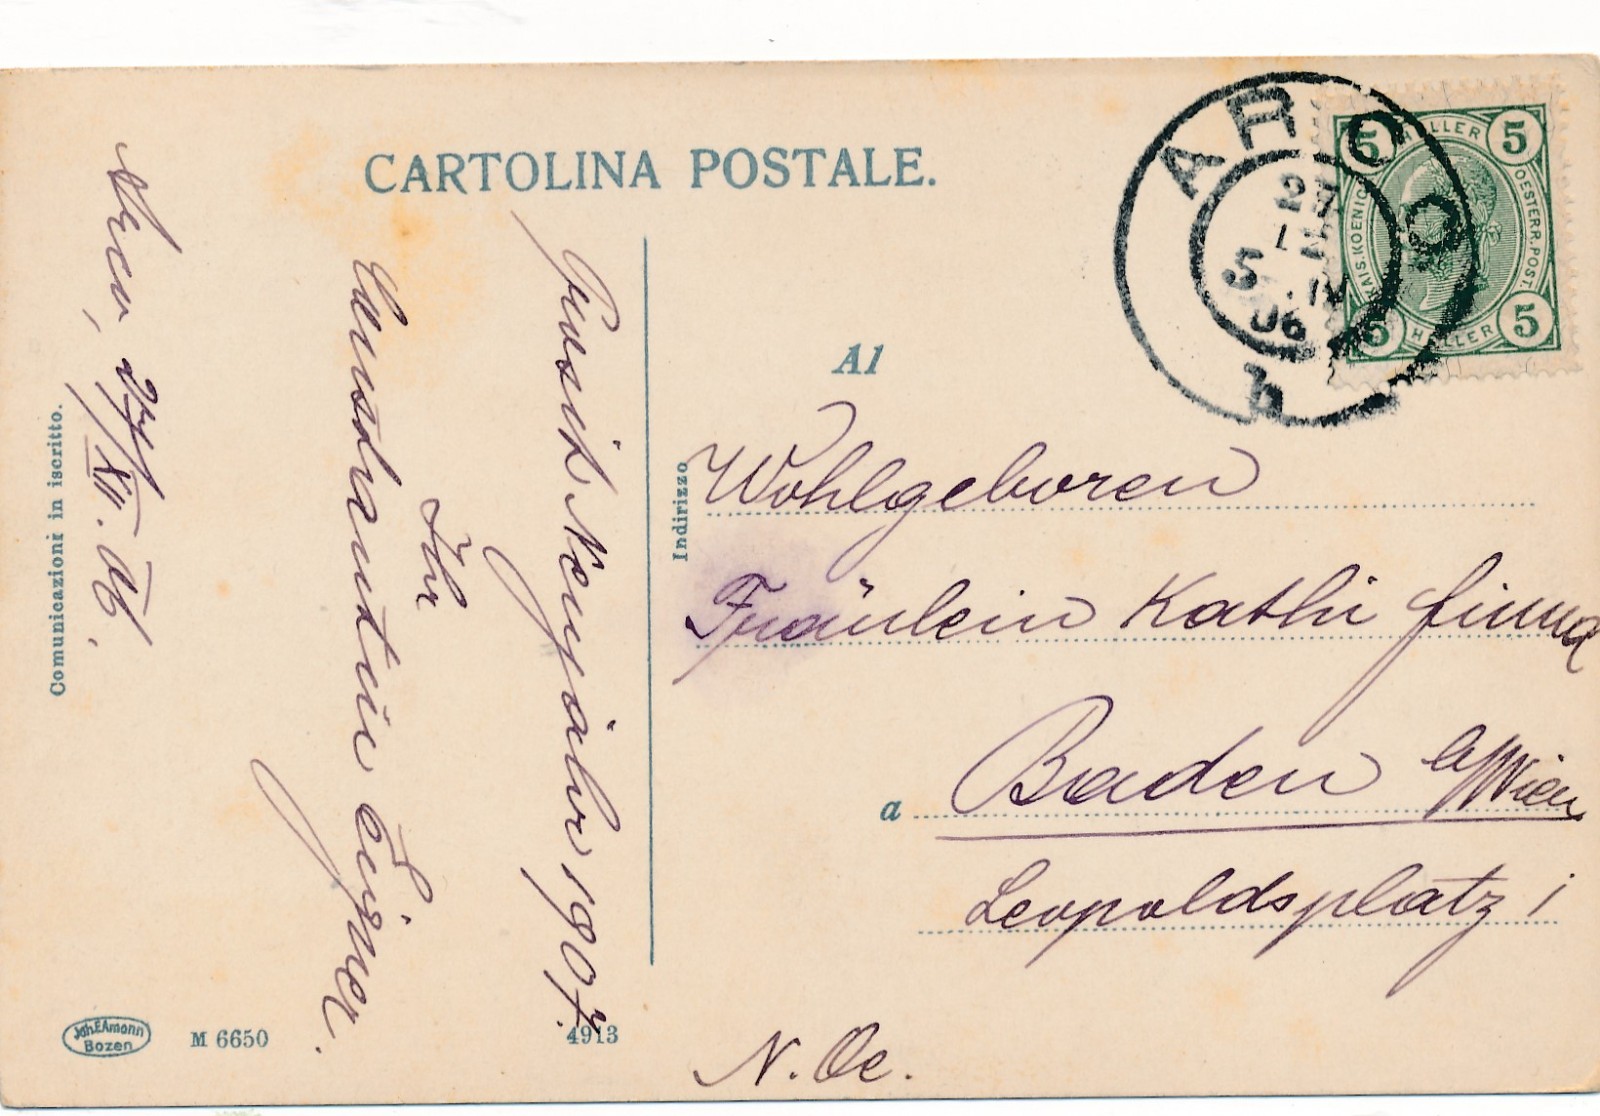 CARTOLINA POSTALE.
Comunicazioni in iscritto.
Arco, 27/XII. 06.
Prosit Neujahr 1907.
Ihr
Constantin
ARCO
27
XII
5
06
b
5 HELLER 5
KAIS. KOENIGL. OESTERR. POST.
5 HELLER 5
Al
Indirizzo
Wohlgeboren
Fräulein Kathi
a Baden b/Wien
Leopoldsplatz 1
N. Oe.
Joh. F. Amonn
Bozen
M 6650
4913